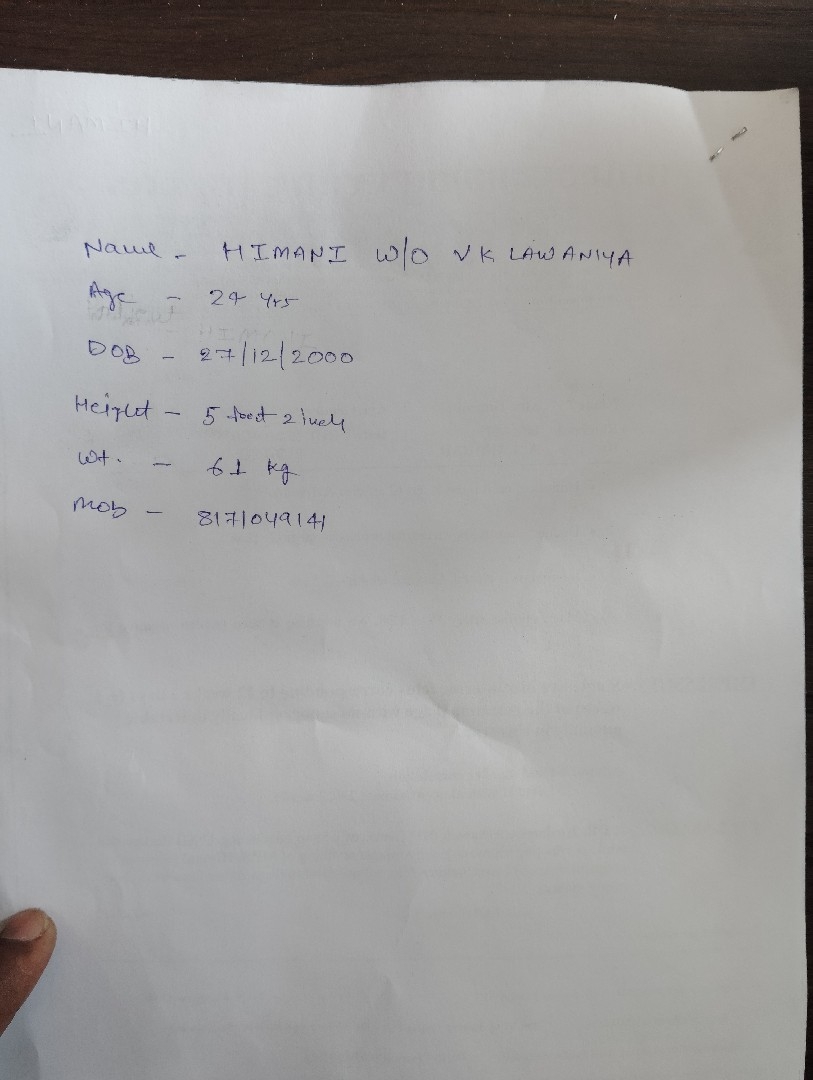 Name - HIMANI W/O VK LAWANIYA
Age - 24 Yrs
DOB - 27/12/2000
Height - 5 feet 2 inch
Wt. - 61 kg
Mob - 8171049141